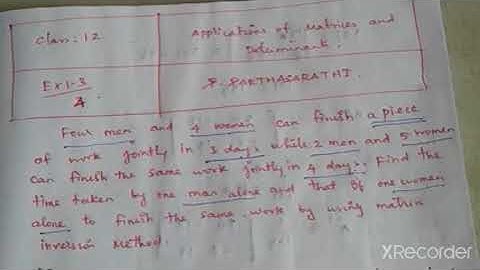 Class: 12
Applications of Matrices and
Determinant.
Ex 1.3
4
P. PARTHASARATHI.
Four men and 4 women can finish a piece
of work jointly in 3 days while 2 men and 5 women
can finish the same work jointly in 4 days. Find the
time taken by one man alone and that of one women
alone to finish the same work by using matrix
inversion method.
XRecorder